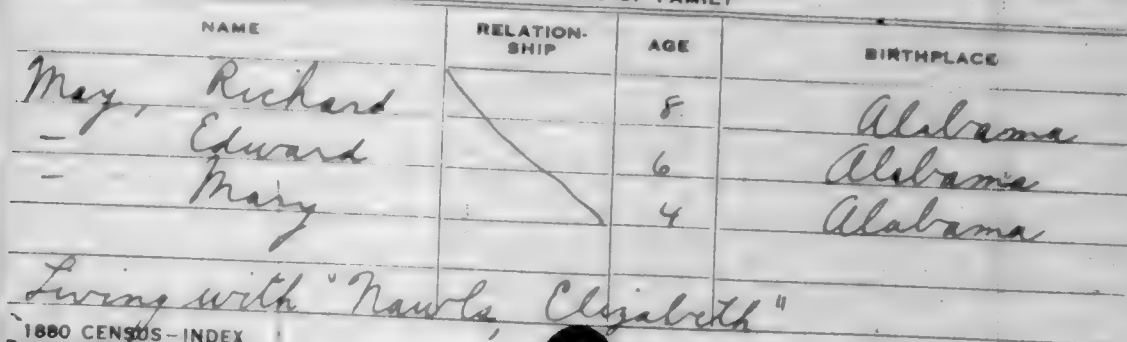 FAMILY
NAME RELATION-SHIP AGE BIRTHPLACE
May, Richard 8 Alabama
– Edward 6 Alabama
– Mary 4 Alabama
Living with "Nawls, Elizabeth"
1880 CENSUS–INDEX